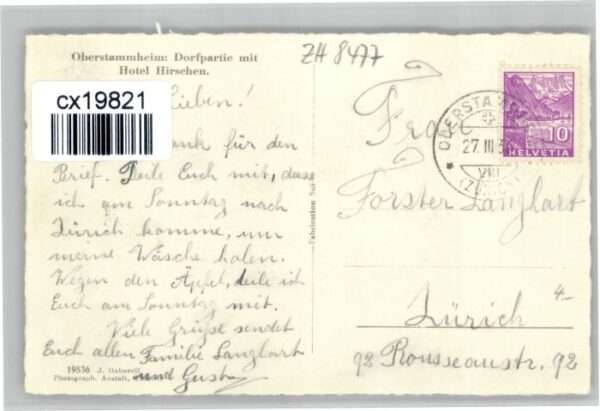 Oberstammheim: Dorfpartie mit
Hotel Hirschen.
ZH 8477
cx19821
Lieben!
Dank für den
Brief. Teile Euch mit, dass
ich am Sonntag nach
Zürich komme, um
meine Wäsche holen.
Wegen den Äpfel, teile ich
Euch am Sonntag mit.
Viele Grüsse sendet
Euch allen Familie Langhart
und Gust
19536 J. Gaberell
Photograph. Anstalt,
Fabrication
OBERSTA
27. III. 3
(ZÜRICH)
10
HELVETIA
Frau
Forster Langhart
4.-
Zürich
92 Rousseaustr. 92